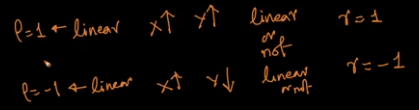 ρ=1 ← linear x↑ y↑ linear or not r=1
ρ=-1 ← linear x↑ y↓ linear or not r=-1